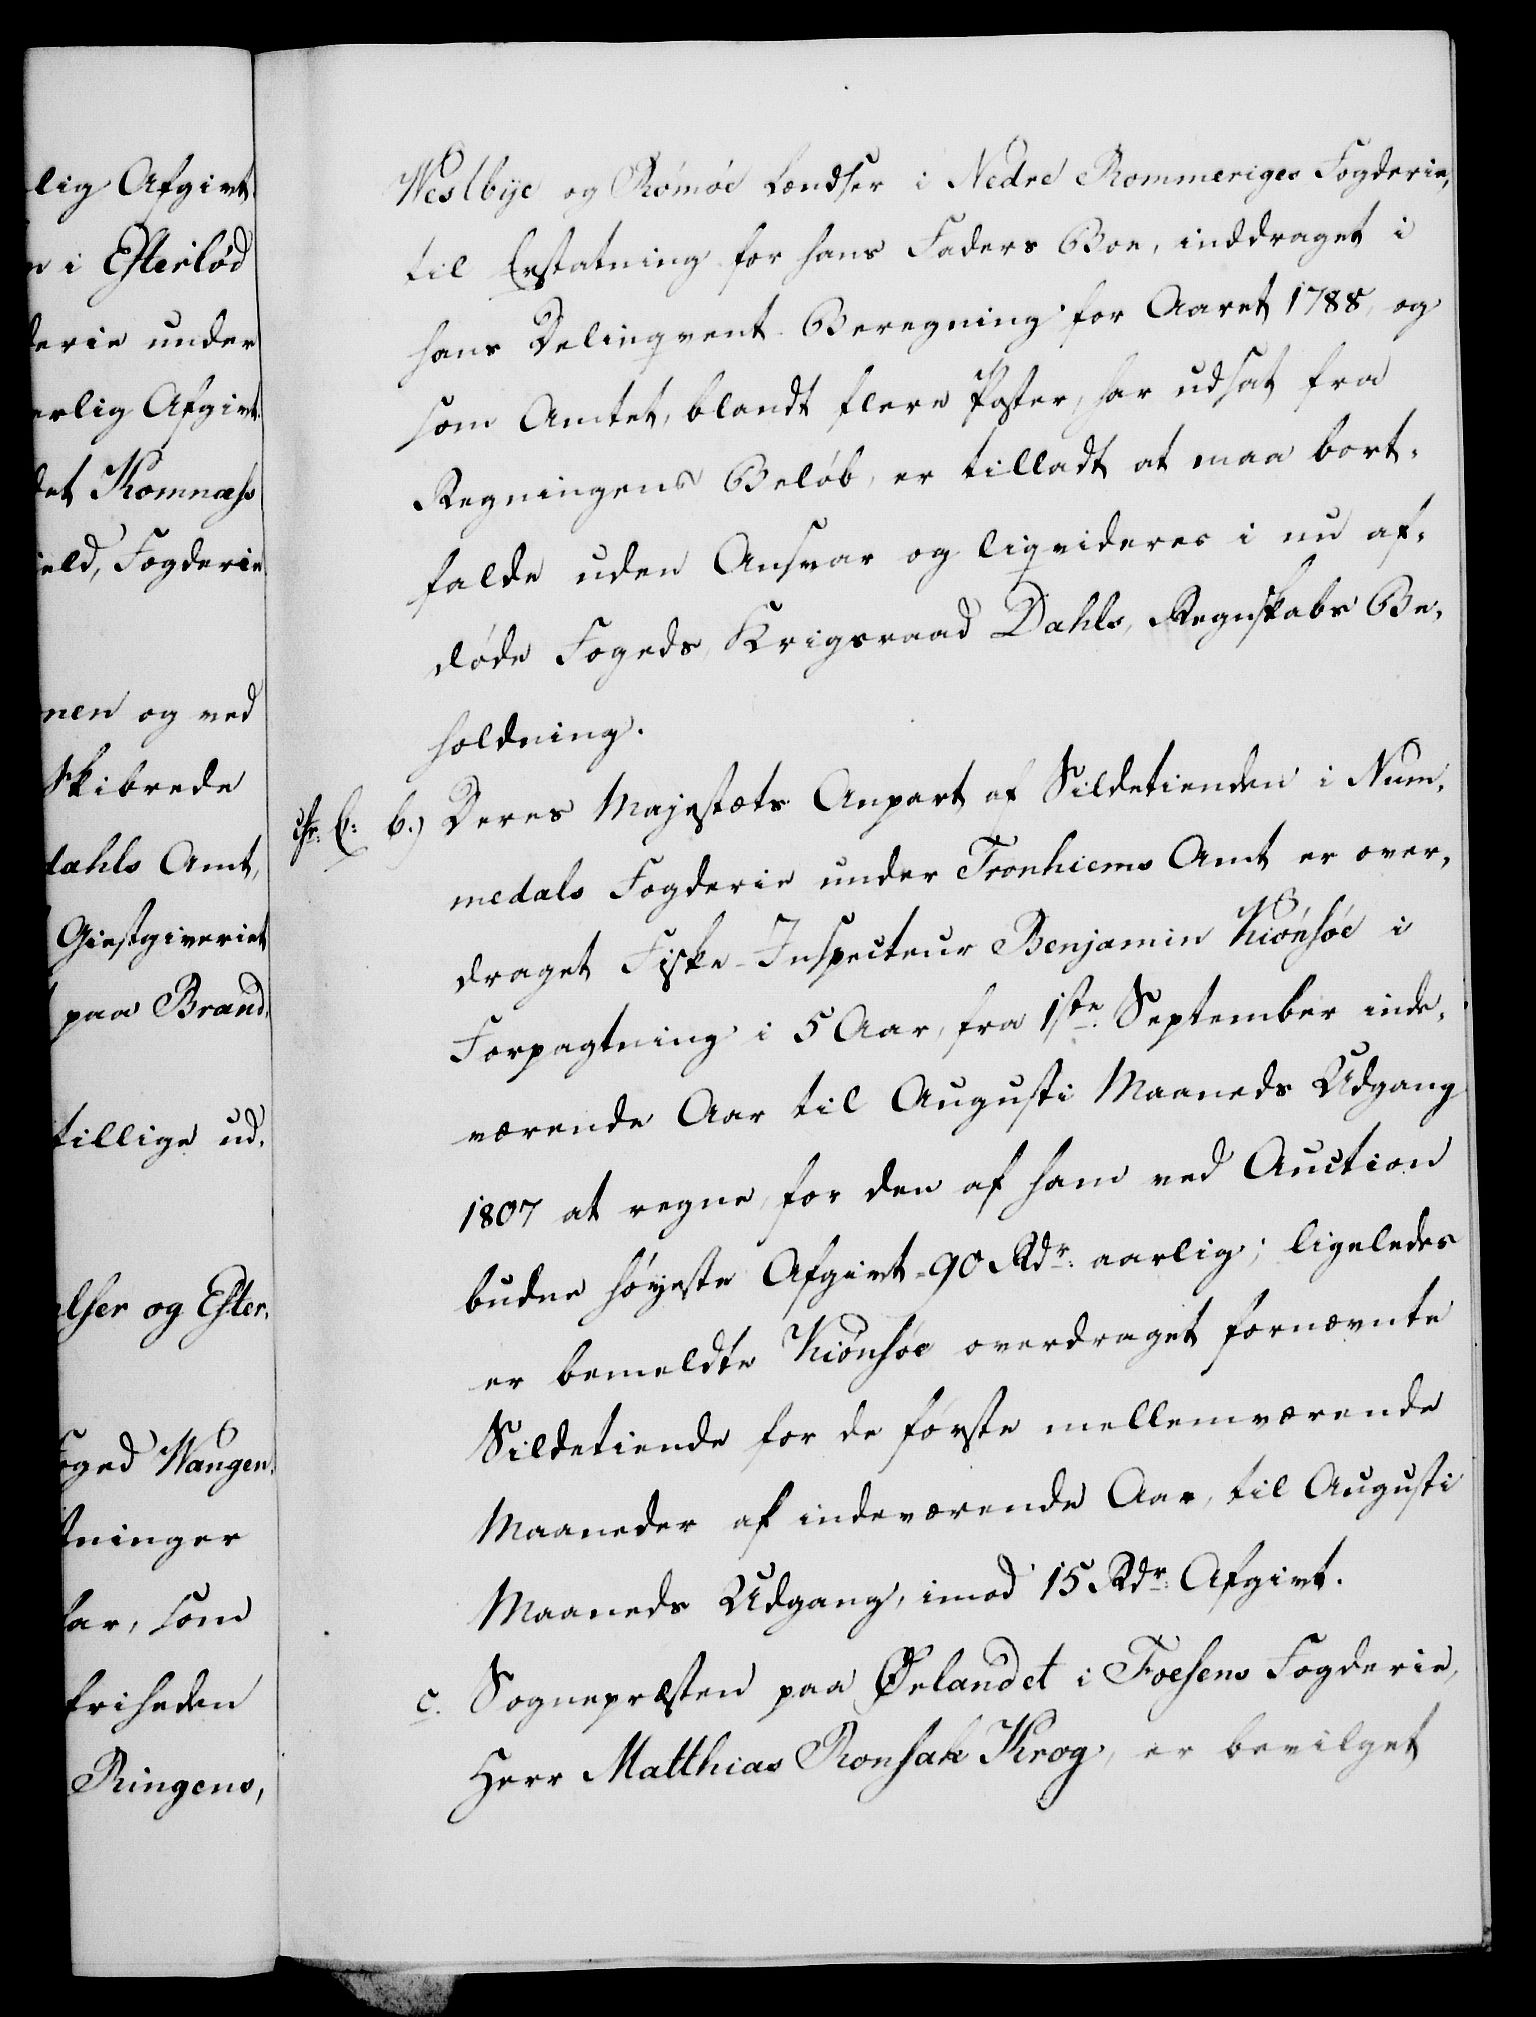 lig Afgivt.
n i Efterlød
derie under
arlig Afgivt.
det Komnæhs
ield, Fogderie
nen og ved
Skibrede
dahls Amt,
Giestgiveriet
paa Brand,
tillige ud,
elser og Efter,
Foged Wangen,
tninger
har, som
friheden
Ringens,
Westbÿe og Rømøe Lændser i Nedre Rommeriges Fogderie,
til Erstatning for hans Faders Boe, inddraget i
hans Delinqvent Beregning for Aaret 1788, og
som Amtet, blandt flere Poster, har udsat fra
Regningens Beløb, er tilladt at maa bort-
falde uden Ansvar og liqvideres i nu af-
døde Fogeds, Krigsraad Dahls, Regnskabs Be-
holdning.
b.) Deres Majestæts Anpart af Sildetienden i Num-
medals Fogderie under Tronhiems Amt er over-
draget Fiske-Inspecteur Benjamin Kiønsøe i
Forpagtning i 5 Aar, fra 1ste September inde-
værende Aar til Augusti Maaneds Udgang
1807 at regne, for den af ham ved Auction
budne høyeste Afgivt 90 Rdr. aarlig; ligeledes
er bemeldte Kiønsøe overdraget fornævnte
Sildetiende for de første mellemværende
Maaneder af indeværende Aar, til Augusti
Maaneds Udgang, imod 15 Rdr. Afgivt.
c. Sognepræsten paa Ørlandet i Foesens Fogderie,
Herr Matthias Bonsak Krog, er bevilget